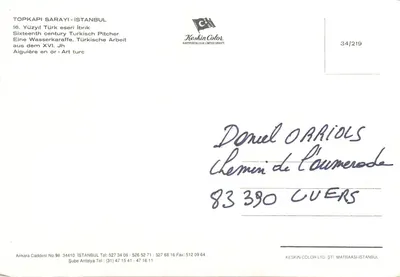 TOPKAPI SARAYI - İSTANBUL
16. Yüzyıl Türk eseri İbrik
Sixteenth century Turkisch Pitcher
Eine Wasserkaraffe, Türkische Arbeit
aus dem XVI. Jh
Aiguière en or - Art turc
Keskin Color
KARTPOSTALCILIK LTD. ŞTİ.
34/219
Daniel ORRIOLS
Chemin de l'oumerade
83390 CUERS
Ankara Caddesi No: 34410 İSTANBUL Tel: 527 34 08 - 526 52 71 - 
Şube Antalya Tel: (31) 
KESKİN COLOR LTD. ŞTİ. MATBAASI-İSTANBUL